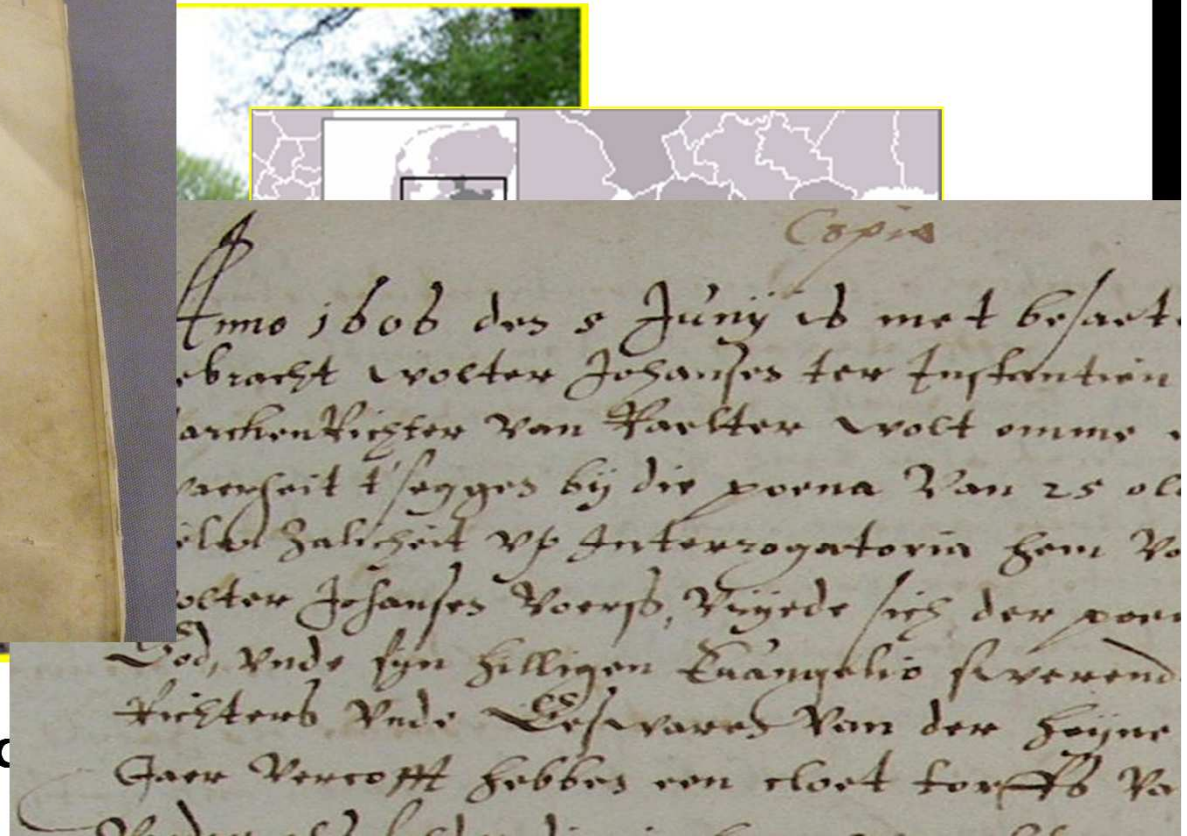 Copia
Anno 1606 den 5 Junij is met besaet
ebracht wolter Johansen ter Instantien
arckenRichter van Raelter wolt omme
aerheit t'seggen bij die poena van 25 old
Zalicheit up Interrogatoria hem vo
olter Johansen voerss, vrijede sich der poen
God, vnde syn hilligen Euangelio swerend
Richters vnde Geswaren van der heijne
Jaer vercofft hebben een cloet torffs va